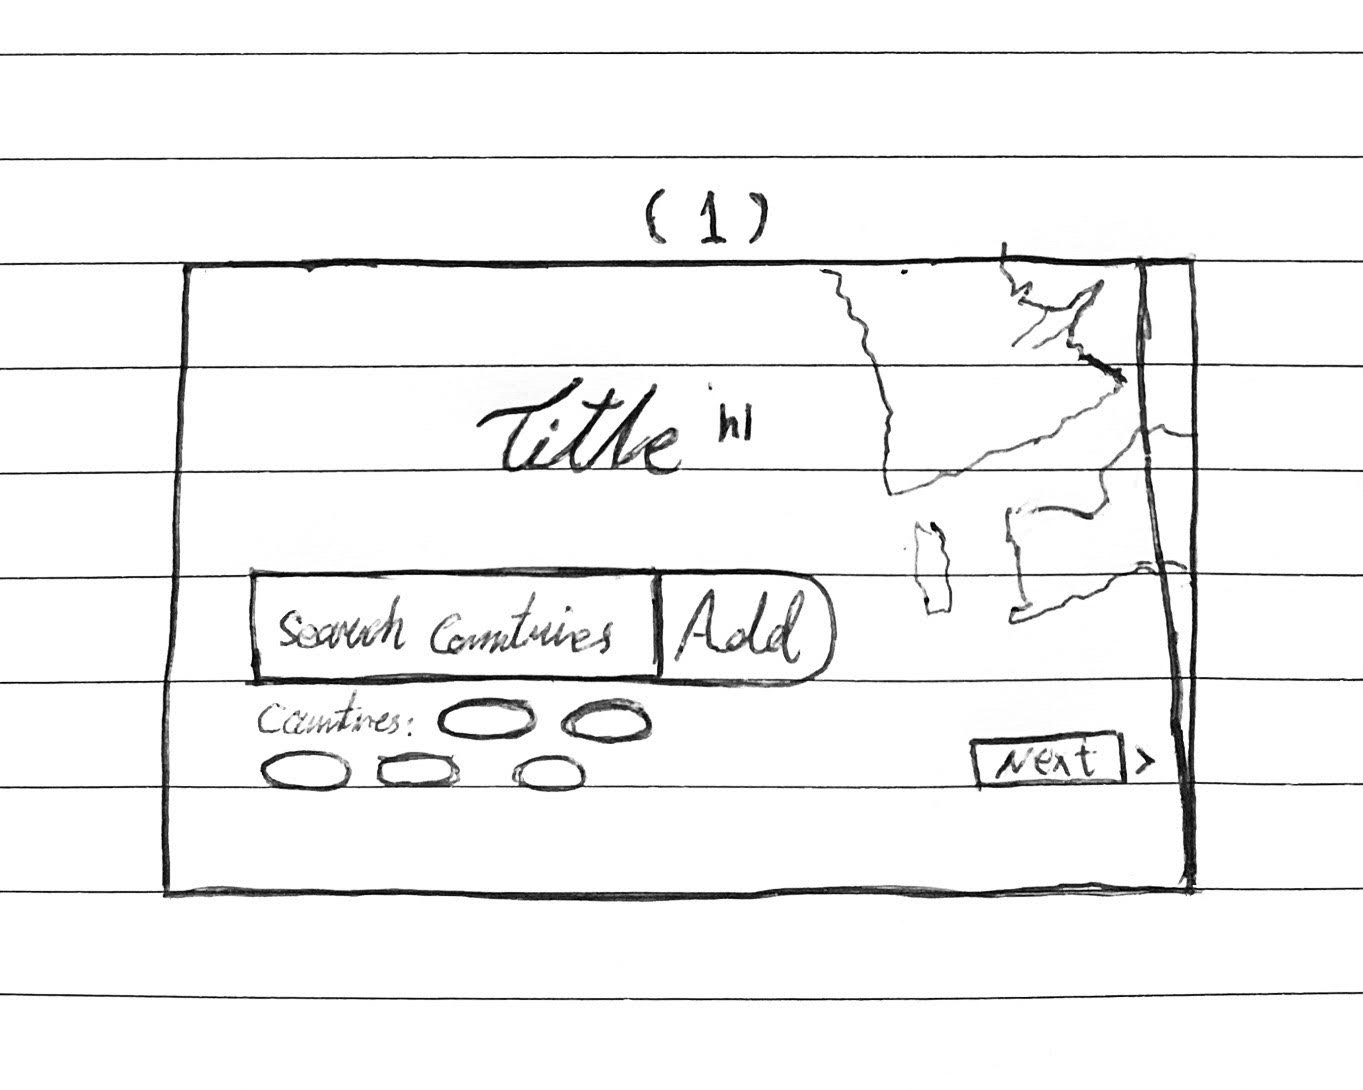 (1)
Title h1
Search Countries Add
Countries:
Next >